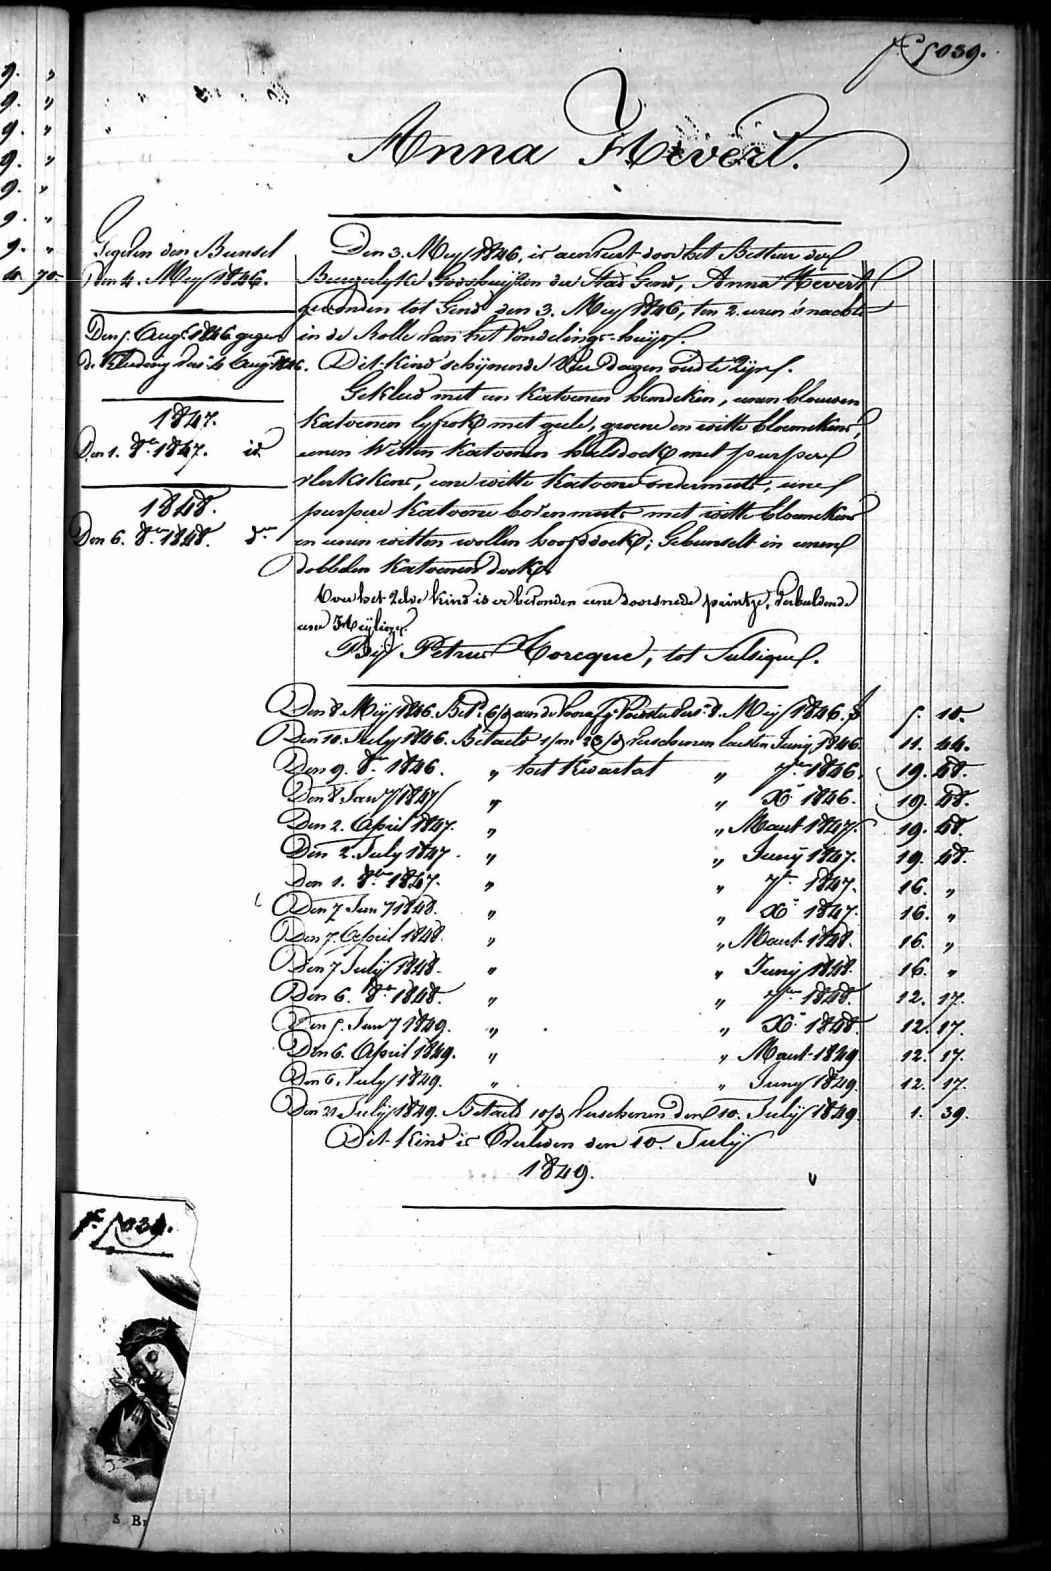 f° 5039.
Anna Hevert.
Gegeven den Bunsel
den 4. Mey 1846.
Den 5. Augt 1846 gegeven
de Kleeding van 4 Augt 1846.
1847.
Den 1. 8bre 1847. id.
1848.
Den 6. 8bre 1848. do
Den 3. Mey 1846, is aenveert door het Bestuer der
Burgerlyke Godshuyzen der Stad Gend, Anna Hevert
gevonden tot Gend den 3. Mey 1846, ten 2. uren 's nachts
in de Rolle van het Vondelings-huys.
Dit Kind schynende vier dagen oud te Zyn.
Gekleed met een katoenen hemdeken, eenen blauwen
katoenen lyfrok met geele, groene en witte bloemekens,
eenen Witten katoenen halsdoek met purpere
vlekskens, eene witte katoene ondermuts, eene
purpere katoene bovenmuts met witte bloemekens
en eenen witten wollen hoofddoek; Gebunselt in eenen
dobbelen katoenen doek.
Over het Zelve kind is er bevonden eene doorsnede printje, verbeeldende
eene Heylige.
By Petrus Cocque, tot Sulsique.
Den 8 Mey 1846. Betd 6/d aen de Voorafg. Voedster vers. 8. Mey 1846. 5. 10.
Den 10. July 1846. Betaeld 1/m 23/d verschenen laetsten Juny 1846. 11. 44.
Den 9. 8bre 1846. " het Kwartael " 7bre 1846. 19. 48.
Den 8 Janry 1847 " " Xbre 1846. 19. 48.
Den 2. April 1847. " " Maert 1847. 19. 48.
Den 2. July 1847. " " Juny 1847. 19. 48.
Den 1. 8bre 1847. " " 7bre 1847. 16. "
Den 7 Janry 1848. " " Xbre 1847. 16. "
Den 7. April 1848. " " Maert 1848. 16. "
Den 7 July 1848. " " Juny 1848. 16. "
Den 6. 8bre 1848. " " 7bre 1848. 12. 17.
Den 5. Janry 1849. " " Xbre 1848. 12. 17.
Den 6. April 1849. " " Maert 1849 12. 17.
Den 6. July 1849. " " Juny 1849. 12. 17.
Den 21 July 1849. Betaeld 10/d verschenen den 10. July 1849. 1. 39.
Dit Kind is Overleden den 10. July
1849.
f° 5039.
S. Br
9. "
9. "
9. "
9. "
9. "
9. "
9. "
70